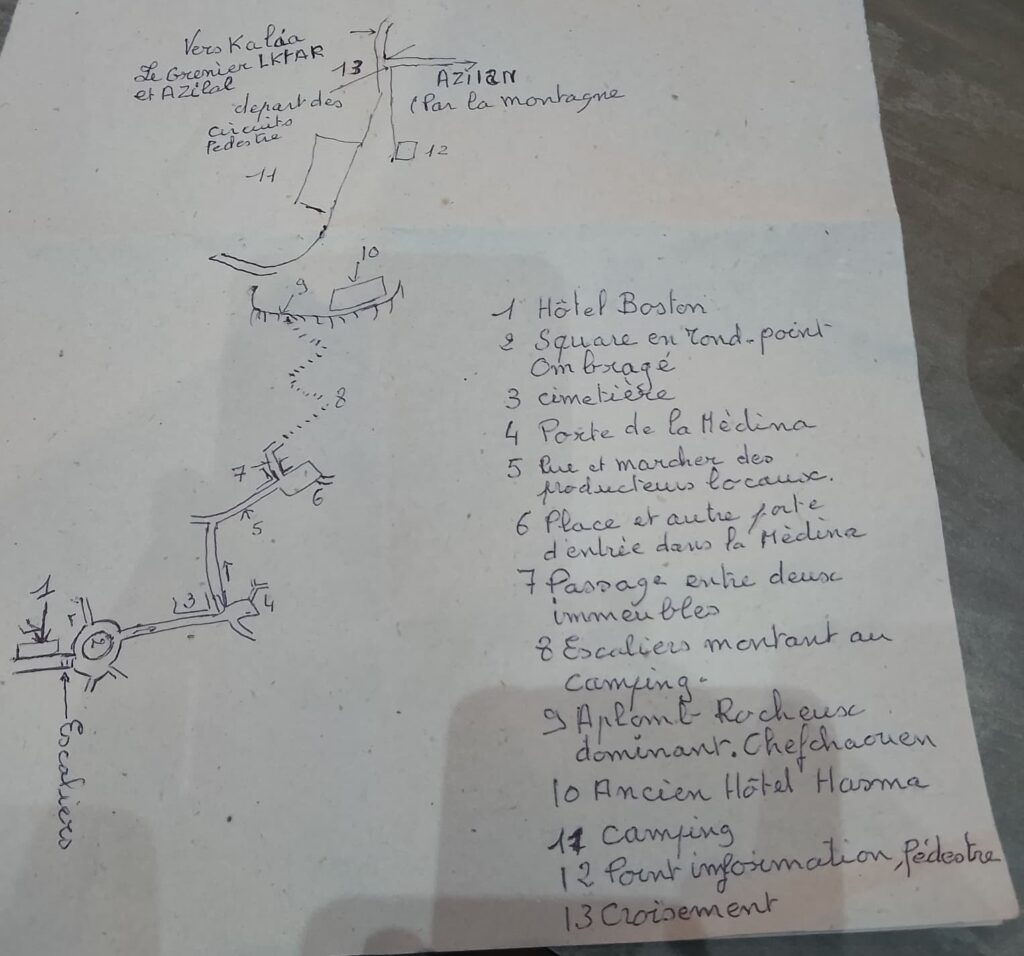 Vers Kalâa
Le Grenier LKHAR
et AZilal
13
AZILAN
(Par la montagne
depart des
circuits
Pedestre
12
11
10
9
8
7
6
5
4
3
2
1
Escaliers
1 Hôtel Boston
2 Square en rond-point
Ombragé
3 cimetière
4 Porte de la Mèdina
5 Rue et marcher des
producteurs locaux.
6 Place et autre porte
d'entrée dans la Mèdina
7 Passage entre deux
immeubles
8 Escaliers montant au
Camping.
9 Aplomb Rocheux
dominant. Chefchaouen
10 Ancien Hôtel Hasma
11 camping
12 Point information, Pédestre
13 Croisement